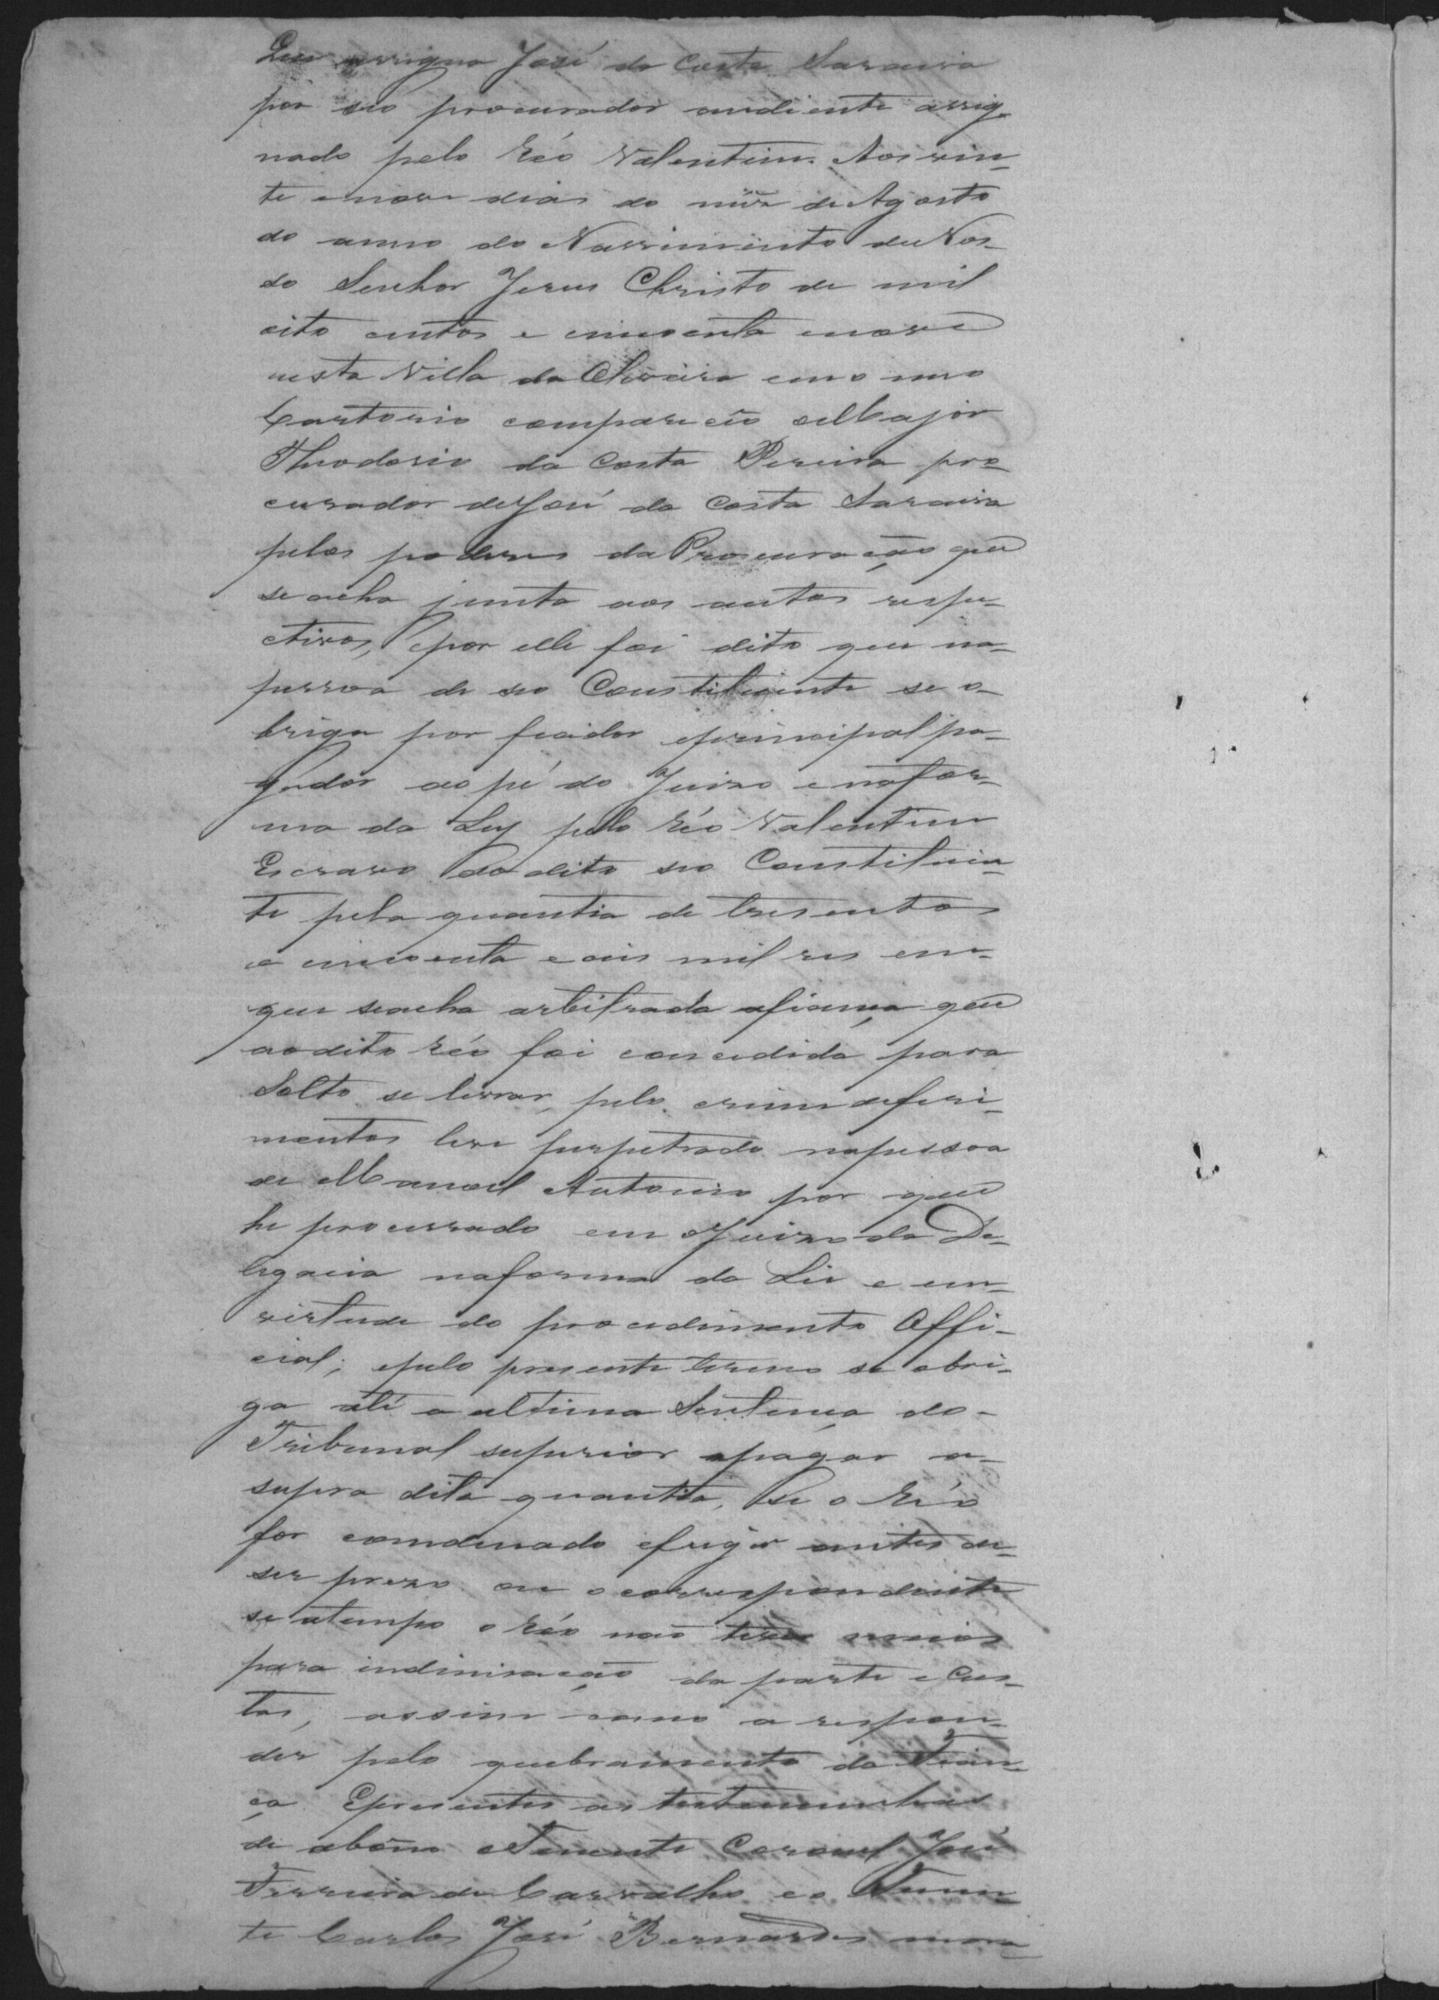 Que assigna José da Costa Saraiva
por seo procurador mediente assig-
nado pelo Réo Valentim. Aos vin-
te e nove dias do mez de Agosto
do anno do Nascimento de Nos-
so Senhor Jesus Christo de mil
oito centos e cincoenta e nove
nesta Villa da Oliveira em o meo
Cartorio compareceo o Major
Theodosio da Costa Pereira pro-
curador de José da Costa Saraiva
pelos poderes da Procuração que
se acha junta aos autos respe-
ctivos, e por elle foi dito que na
pessoa de seo Constituinte se o-
briga por fiador e principal pa-
gador ao pé do Juizo e na for-
ma da Ley pelo Réo Valentim
Escravo do dito seo Constituin-
te pela quantia de tresentos
e cincoenta e seis mil reis em
que se acha arbitrada a fiança que
ao dito Réo foi concedida para
Solto se livrar, pelo crime de feri-
mentos leve perpetrado na pessoa
de Manoel Antonio por que
he procurado em o Juizo da De-
legacia na forma da Lei e em
virtude do procedimento Offi-
cial; e pelo presente termo se obri-
ga até a ultima Sentença do
Tribunal superior a pagar a
supra dita quantia, se o Réo
for condenado e fugir antes de
ser prezo ou o correspondente
se a tempo o Réo não tiver meios
para indinisação da parte e Cus-
tas, assim como a respon-
der pelo quebramento da Fian-
ça E presentes as testemunhas
de abono o Tenente Coronel José
Ferreira de Carvalho e o Tenen-
te Carlos José Bernardes mora